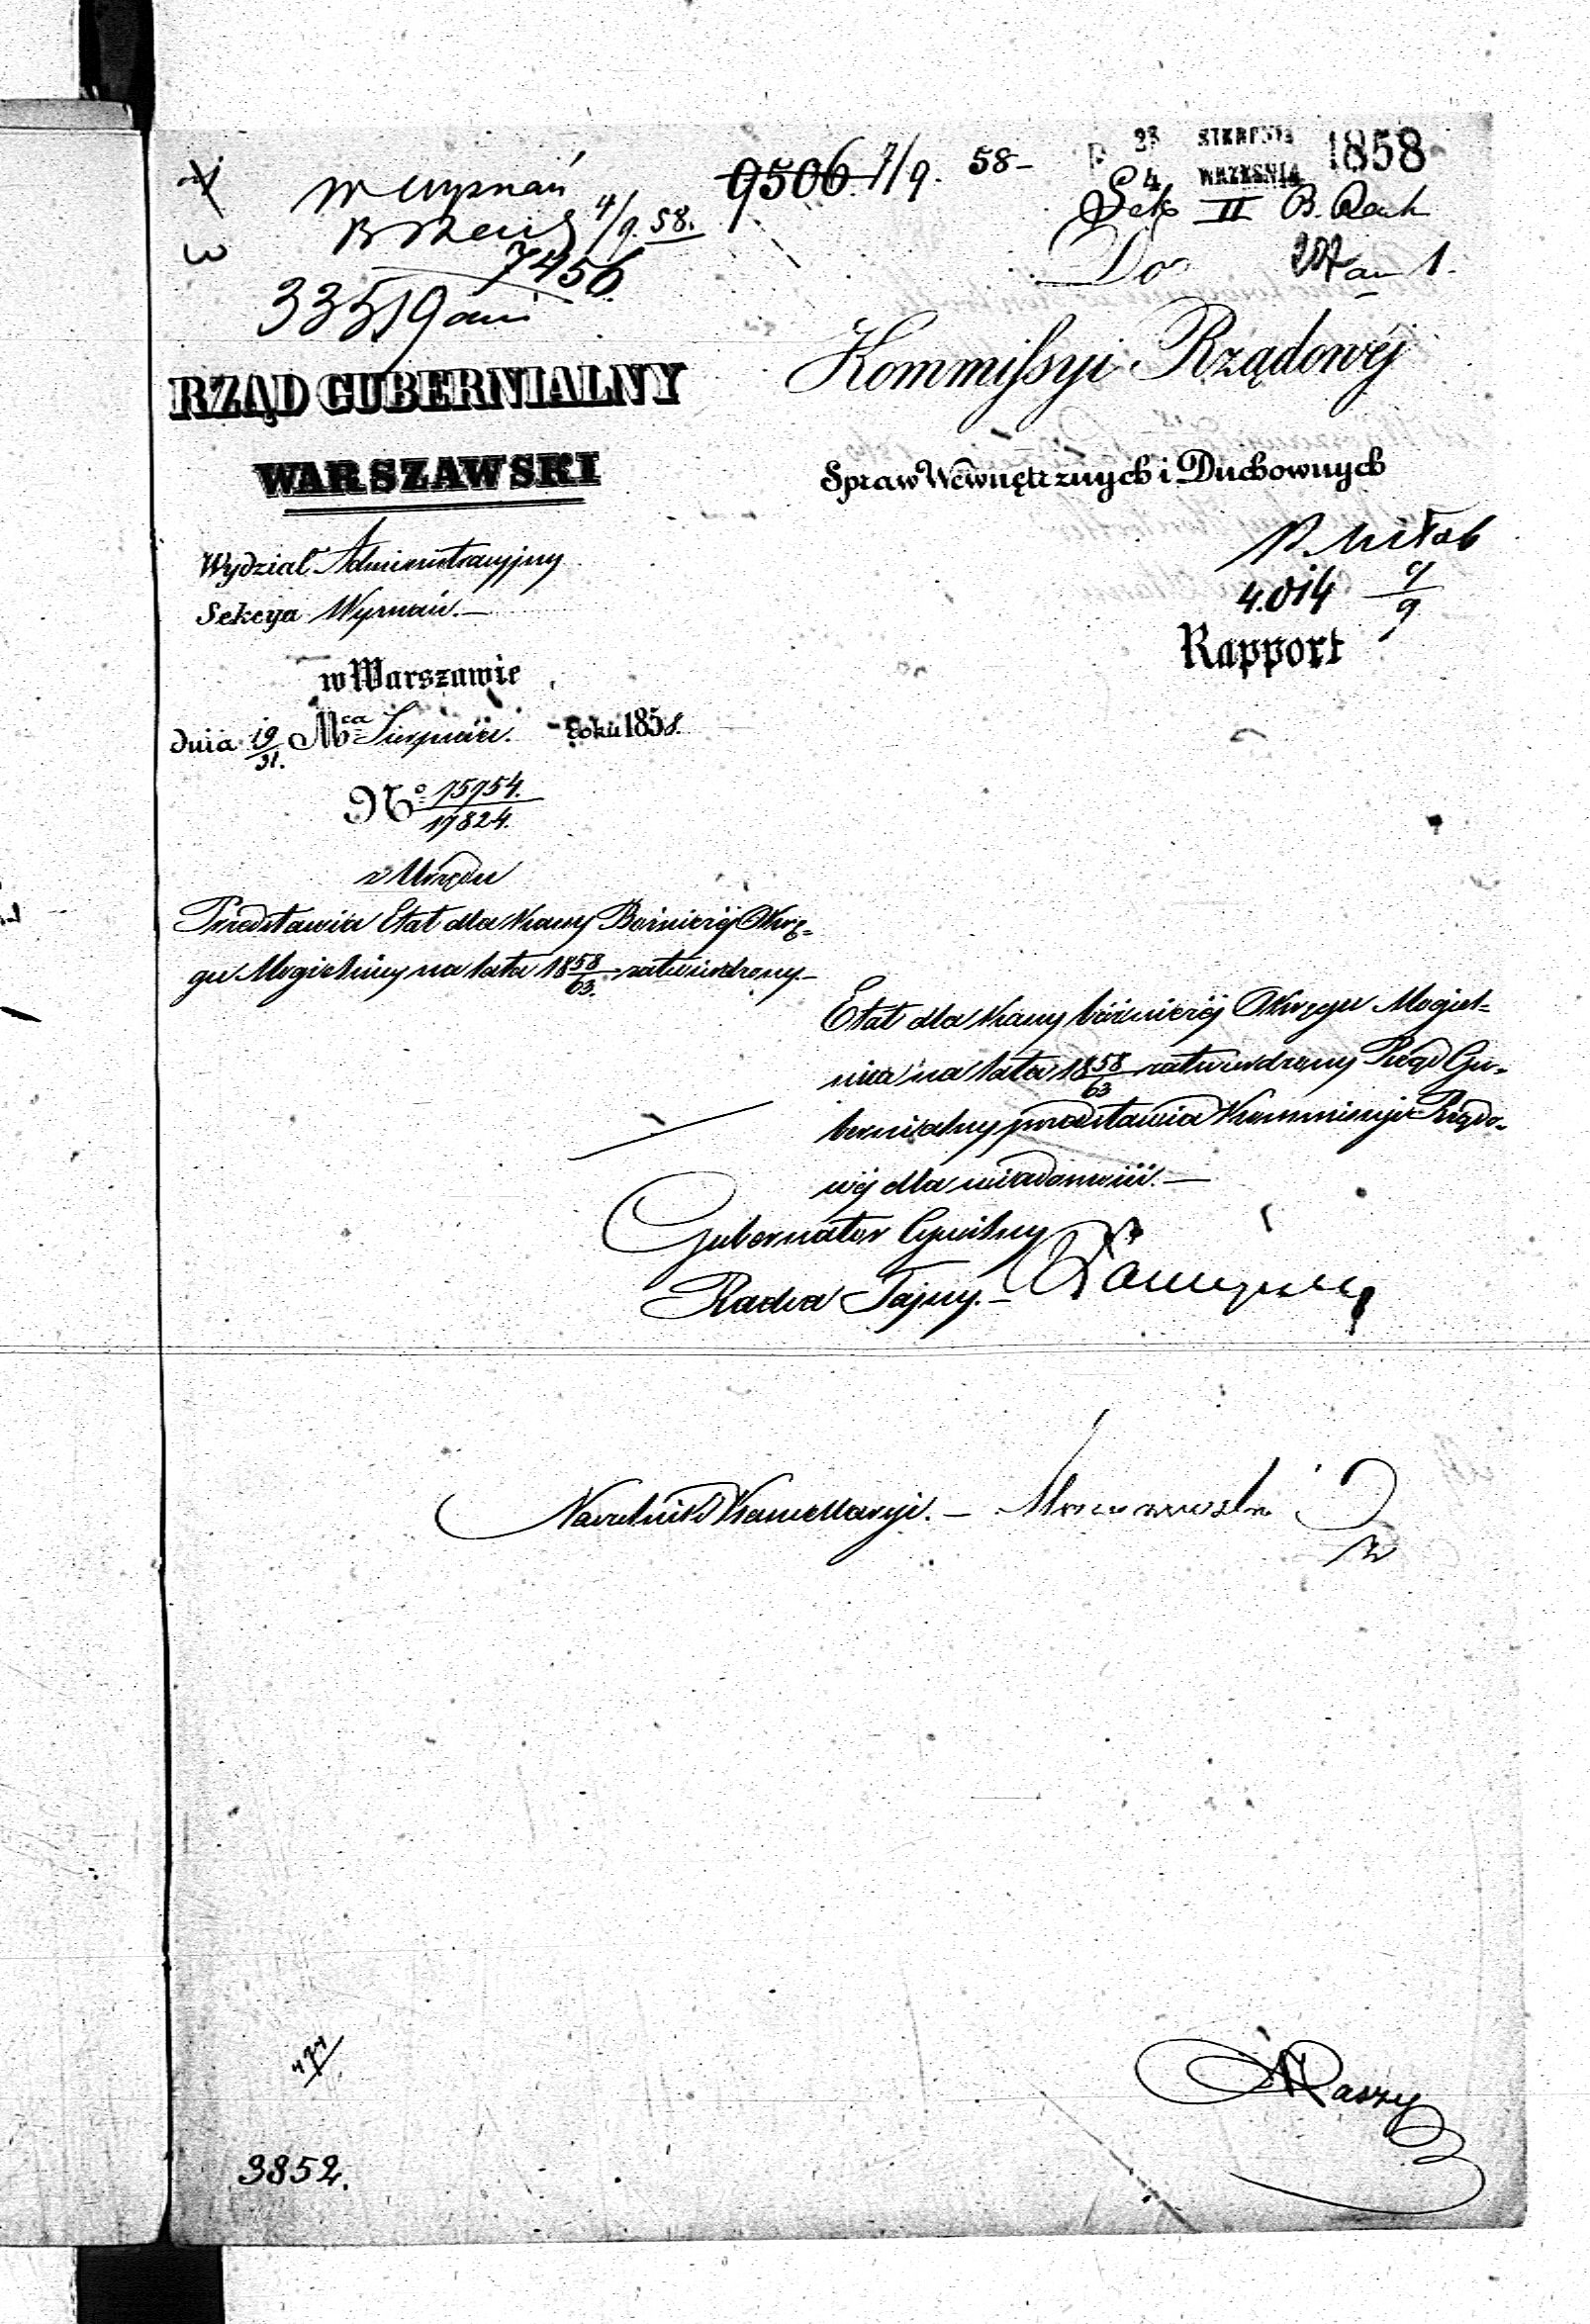 W Wyznań
4/9 58.
7456
33519
9506 7/9. 58-
23 SIERPNIA
4 WRZEŚNIA 1858
Sek II B. Rach
Do
Kommissyi Rządowéj
Spraw Wewnętrznych i Duchownych
4.014 9/9
Rapport
RZĄD GUBERNIALNY
WARSZAWSKI
Wydział Administracyjny
Sekcya Wyznań.—
w Warszawie
dnia 19/31. Mca Sierpnia. roku 1858.
No 15754./17824.
z Urzędu
Przedstawia Etat dla Kassy Bożniczéj Okrę-
gu Mogielnicy na lata 1858/63. zatwierdzony.—
Etat dla Kassy bóżniczéj Okręgu Mogiel-
nica na lata 1858/63 zatwierdzony Rząd Gu-
bernialny przedstawia Kommissyi Rządo-
wéj dla wiadomości.—
Gubernator Cywilny
Radca Tajny.—
Naczelnik Kancellaryi.—
3852.